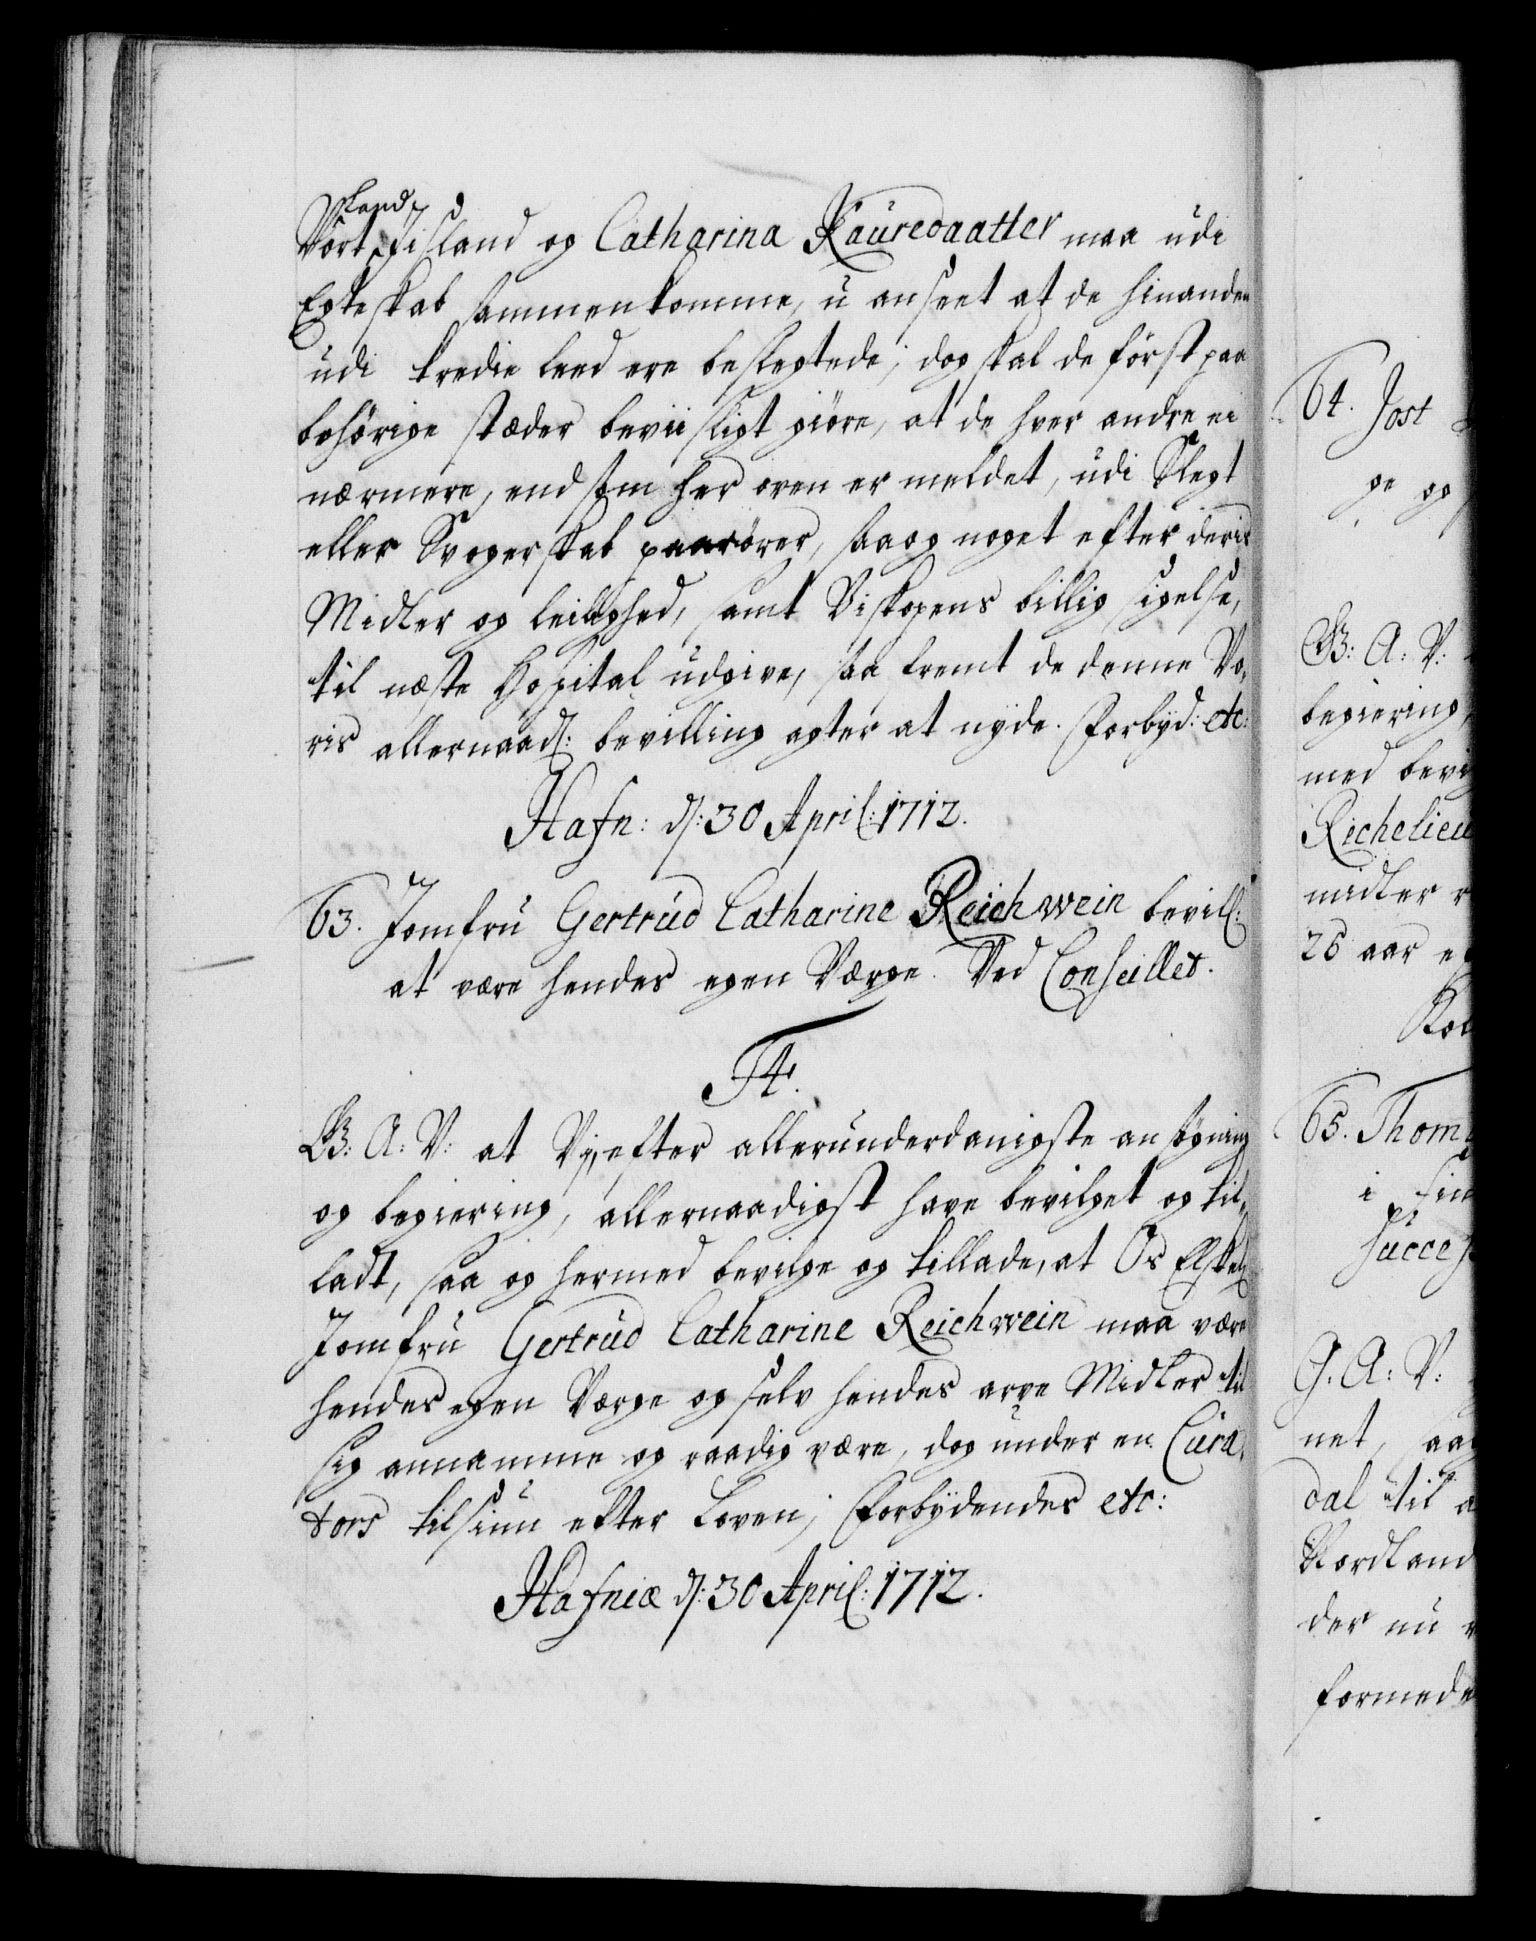 Land
Vort Jisland og Catharina Kauredaatter maa udi
Egteskab sammenkomme, u anseet at de hinanden
udi tredie leed ere beslegtede; dog skal de först paa
behörige stæder beviisligt giöre, at de hver andre ei
nærmere, end som her oven er meldet, udi Slegt
eller Svogerskab paarörer, saa og noget efter deris
Midler og leilighed, samt Biskopens billig sigelse,
til næste Hospital udgive, saa fremt de denne Vo,
ris allernaad: bevilling agter at nyde. Forbyd: etc:
Hafn: d: 30 April: 1712.
63. Jomfru Gertrud Catharine Reichwein bevil:
at være hendes egen Værge. Ved Conseillet.
F4.
G: A: V: at Vj, efter allerunderdanigste ansøgning
og begiering, allernaadigst have bevilget og til,
ladt, saa og hermed bevilge og tillade, at Os Elskel:
Jomfru Gertrud Catharine Reichwein maa være
hendes egen Værge og selv hendes arve Midler til
sig annamme og raadig være, dog under en Cura,
tors tilsiun efter Loven; Forbydendes etc:
Hafniæ d: 30 April: 1712.
64. Jost
ge og
G: A: V:
begiering,
med bevi
Richelieu
midler
25 aar
65. Thom
i
Succes
G. A: V:
net, saa
dal til a
Nordland
der nu
formede